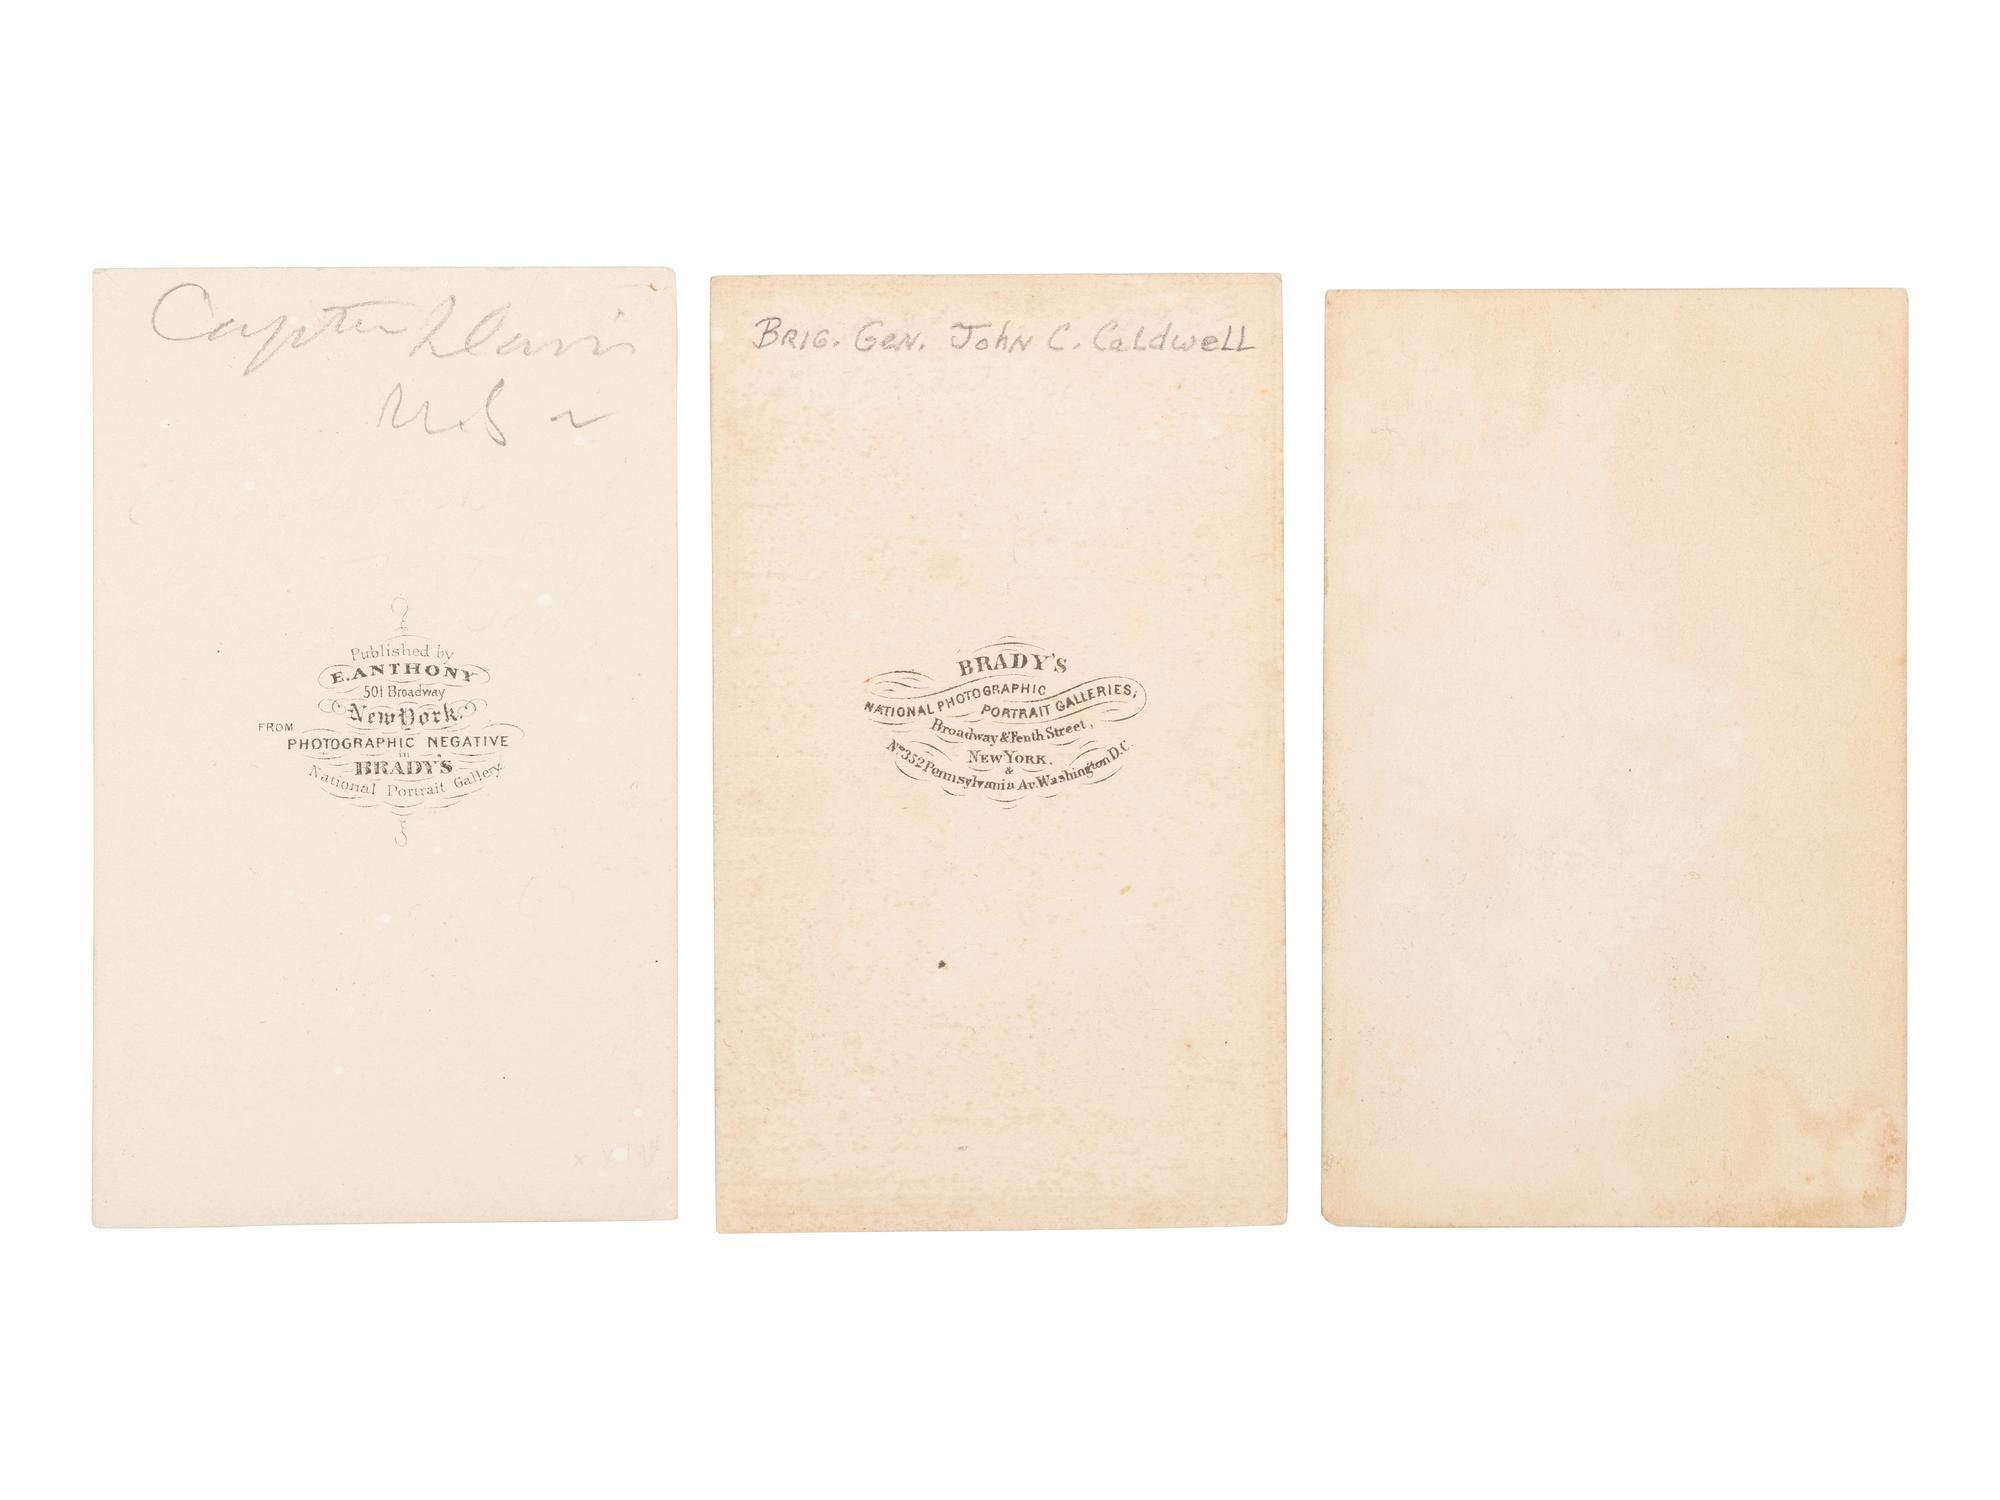 Capten Davis
U.S n
Published by
E. ANTHONY
501 Broadway
New York.
FROM
PHOTOGRAPHIC NEGATIVE
in
BRADY'S
National Portrait Gallery.
BRIG. GEN. John C. CaLdweLL
BRADY'S
NATIONAL PHOTOGRAPHIC
PORTRAIT GALLERIES,
Broadway & Tenth Street,
NEW YORK.
&
No. 352 Pennsylvania Av. Washington D.C.